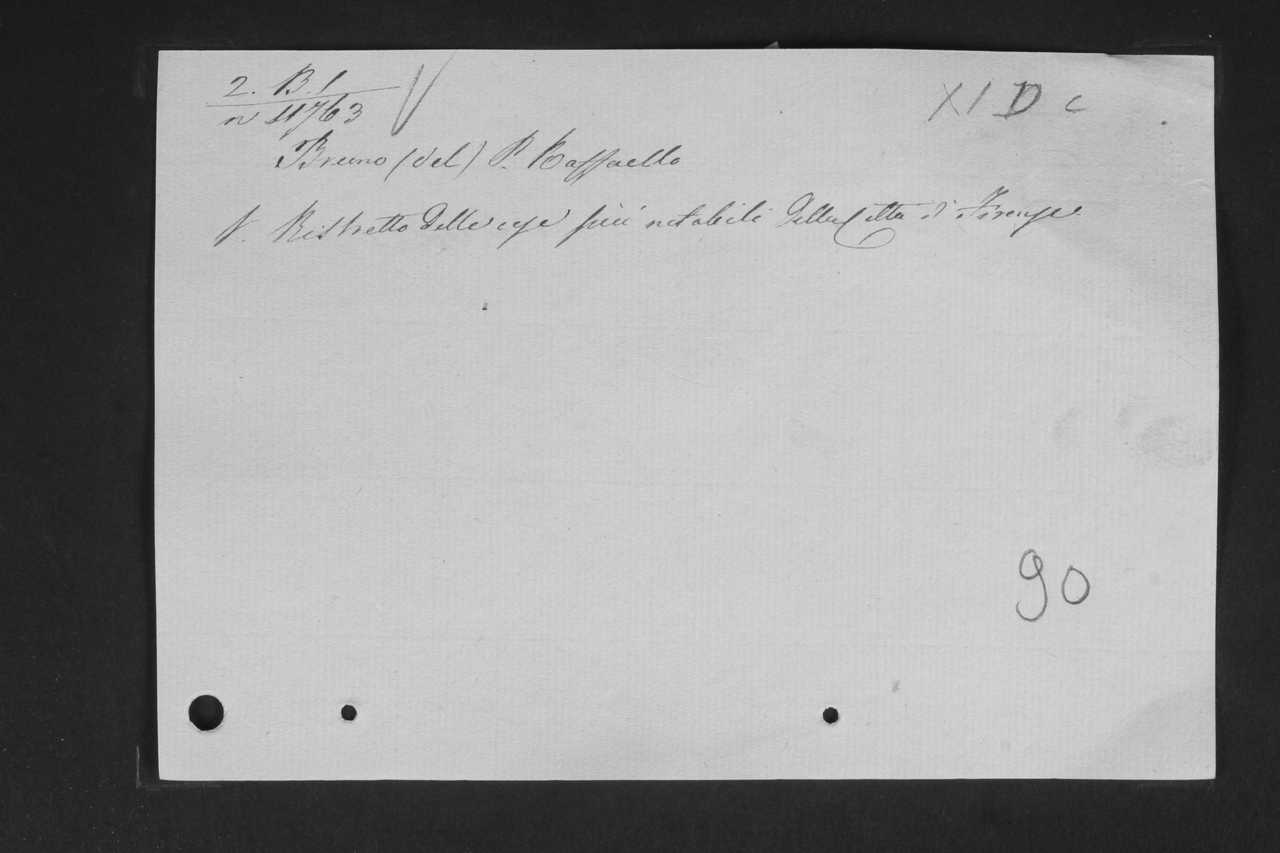 2. B. f
n 11763
XI D c
Bruno (del) P. Raffaello
V. Ristretto delle cose più notabili della Citta di Firenze
90